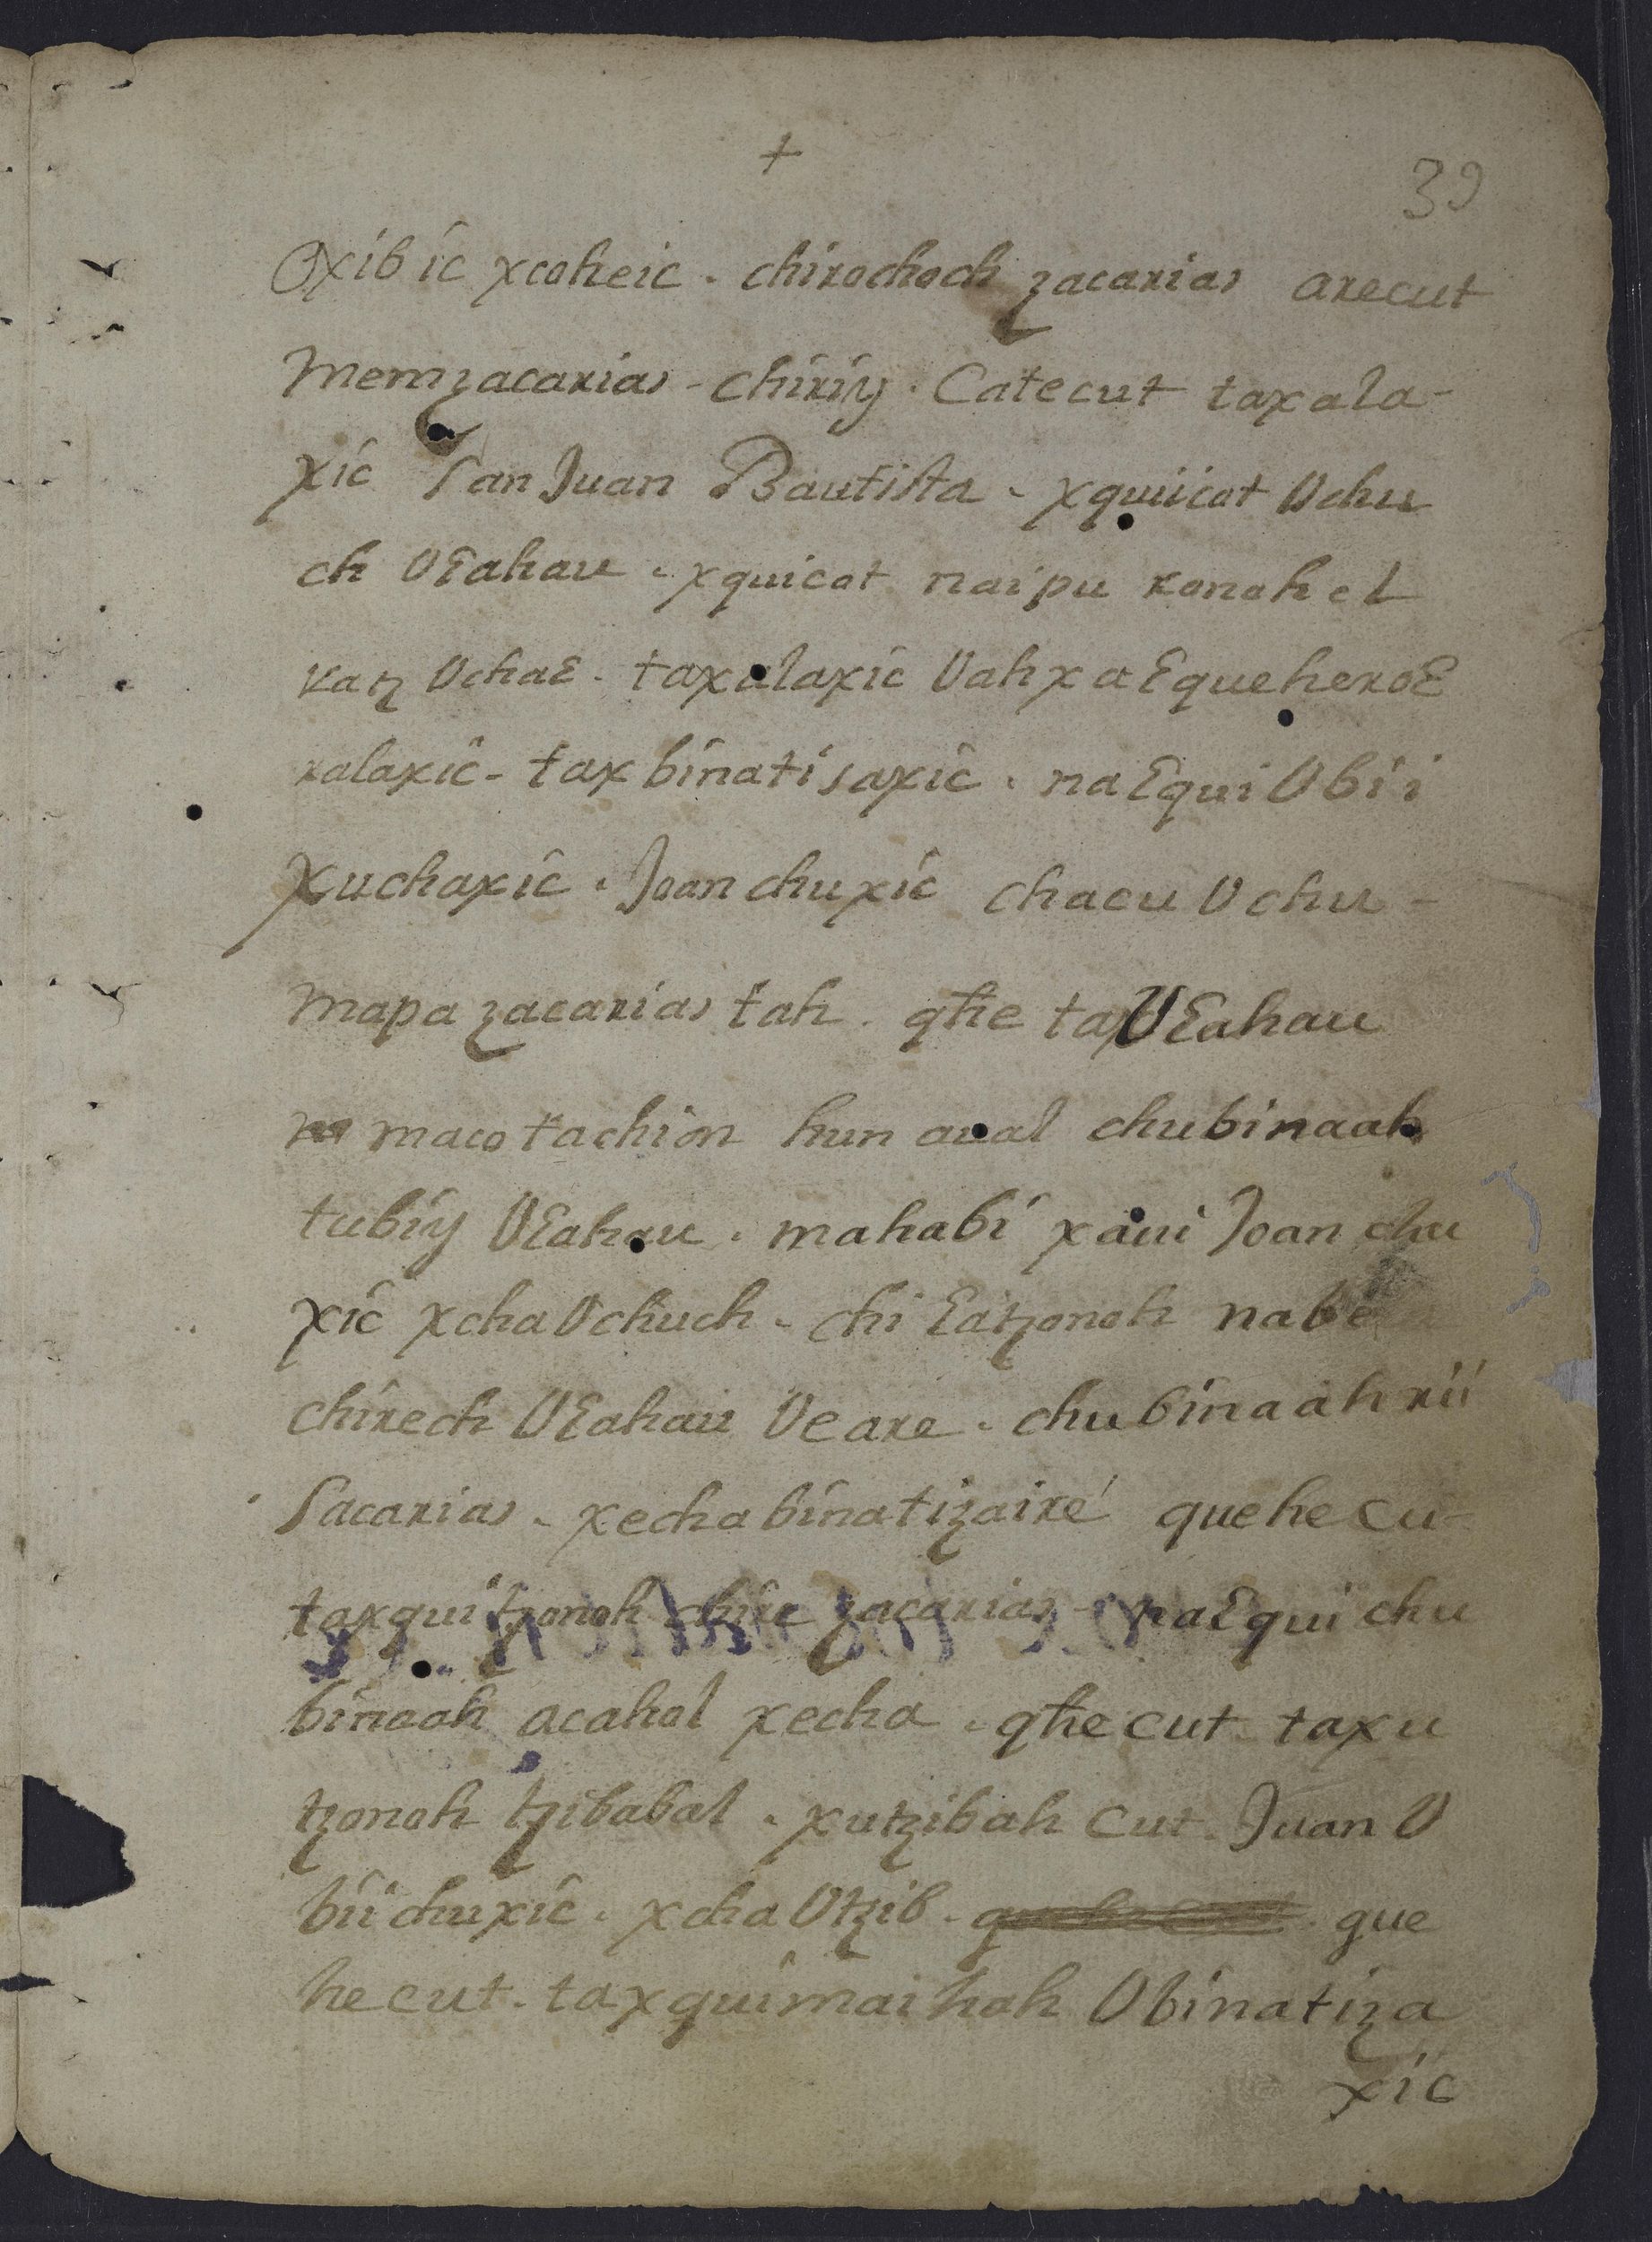 +
39
Oxib ic xcoheic. chirochoch zacarias arecut
Memzacarias - chiriy. Catecut taxala-
xic San Juan Bautista. xquiicot Uchu
ch UƐahau. xquicot naipu ronohel
ratz UchaƐ. taxalaxic UahxaƐ queheroƐ
ralaxic - taxbinatisaxic. naƐqui Ubii
Xuchaxic. Joan chuxic chacu Uchu-
Mapa zacarias tah. qhe tax UƐahau
macotachion hun aual chubinaah
tubiy UƐahau. mahabi xaui Joan chu
xic xcha Uchuch. chi Ɛatzonoh nabe
chirech UƐahau Ue are. chubinaah rii
Sacarias. xecha binatizairé quehe cu-
taxquitzonoh chire zacarias - naƐqui chu
binaah acahol xecha. qhe cut taxu
tzonoh tzibabal. xutzibah cut Juan U
bii chuxic. xcha Utzib. que
he cut. taxquimaihah Ubinatiza
xic